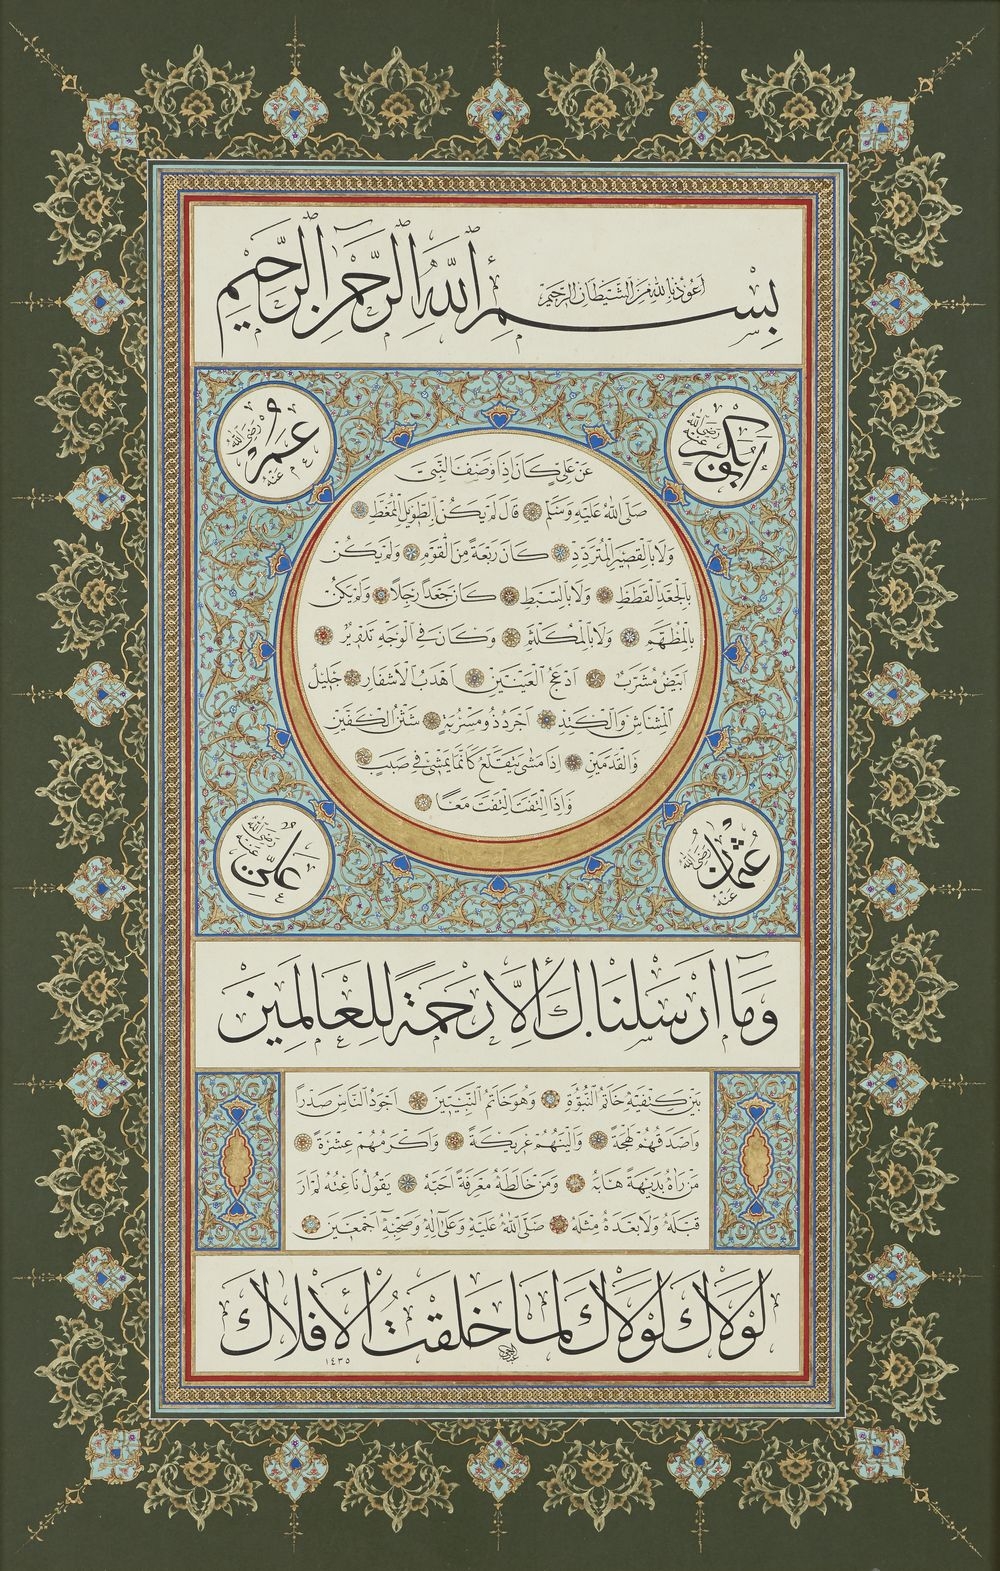 اعوذ بالله من الشيطان الرجيم
بسم الله الرحمن الرحيم
ابو بكر رضي الله عنه
عمر رضي الله عنه
عن علي كان اذا وصف النبي
صلى الله عليه وسلم قال لم يكن بالطويل الممغط
ولا بالقصير المتردد كان ربعة من القوم ولم يكن
بالجعد القطط ولا بالسبط كان جعدا رجلا ولم يكن
بالمطهم ولا بالمكلثم وكان في الوجه تدوير
ابيض مشرب ادعج العينين اهدب الاشفار جليل
المشاش والكتد اجرد ذو مسربة شثن الكفين
والقدمين اذا مشى يتقلع كانما يمشي في صبب
واذا التفت التفت معا
عثمان رضي الله عنه
علي رضي الله عنه
وما ارسلناك الا رحمة للعالمين
بين كتفيه خاتم النبوة وهو خاتم النبيين اجود الناس صدرا
واصدقهم لهجة والينهم عريكة واكرمهم عشرة
من رآه بديهة هابه ومن خالطه معرفة احبه يقول ناعته لم ار
قبله ولا بعده مثله صلى الله عليه وعلى آله وصحبه اجمعين
لولاك لولاك لما خلقت الافلاك
١٤٣٥